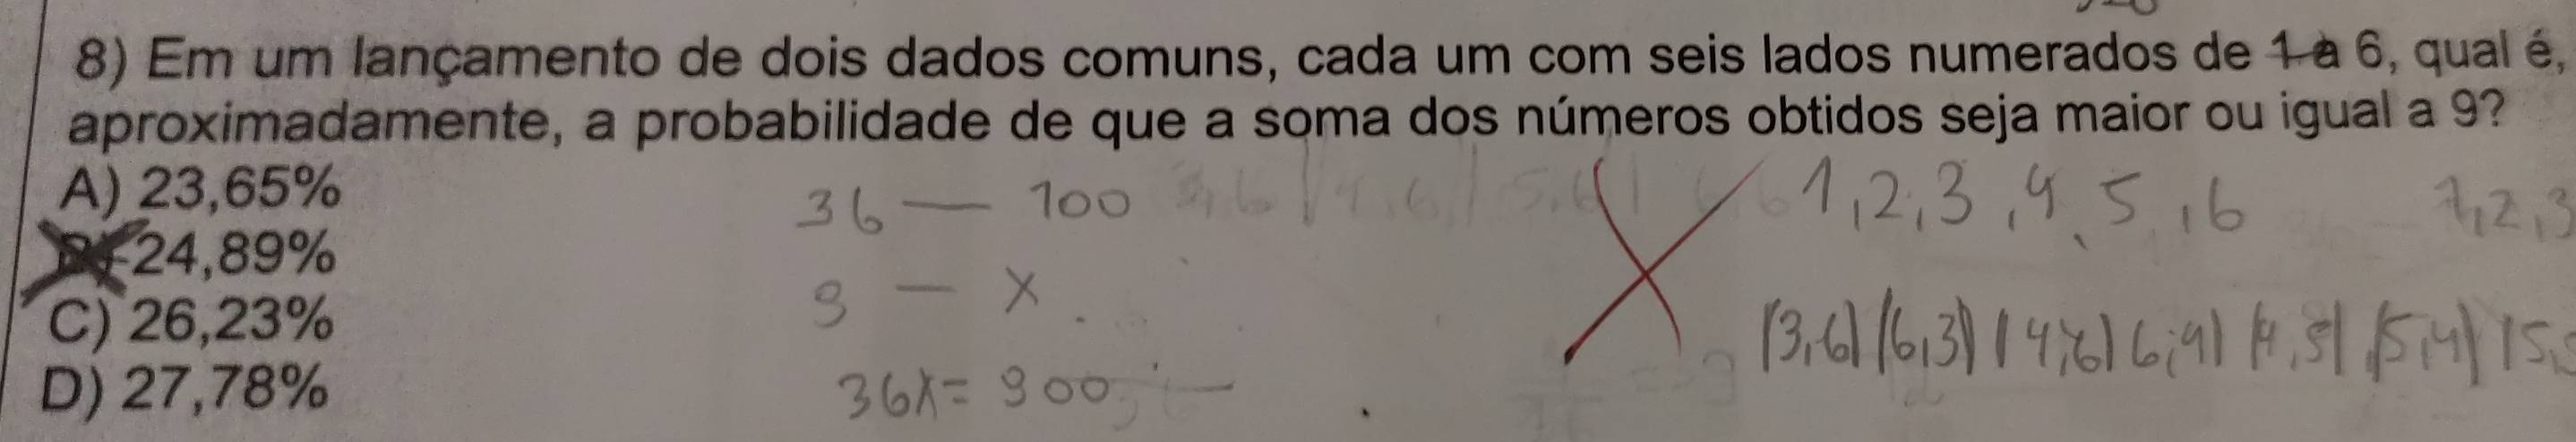 8) Em um lançamento de dois dados comuns, cada um com seis lados numerados de 1 a 6, qual é,
aproximadamente, a probabilidade de que a soma dos números obtidos seja maior ou igual a 9?
A) 23,65%
B) 24,89%
C) 26,23%
D) 27,78%
36 — 100
9 — x
36x = 900
1, 2, 3, 4, 5, 6
1, 2, 3
(3,6) (6,3) (4,6) 6,4) (4,5) (5,4) (5,